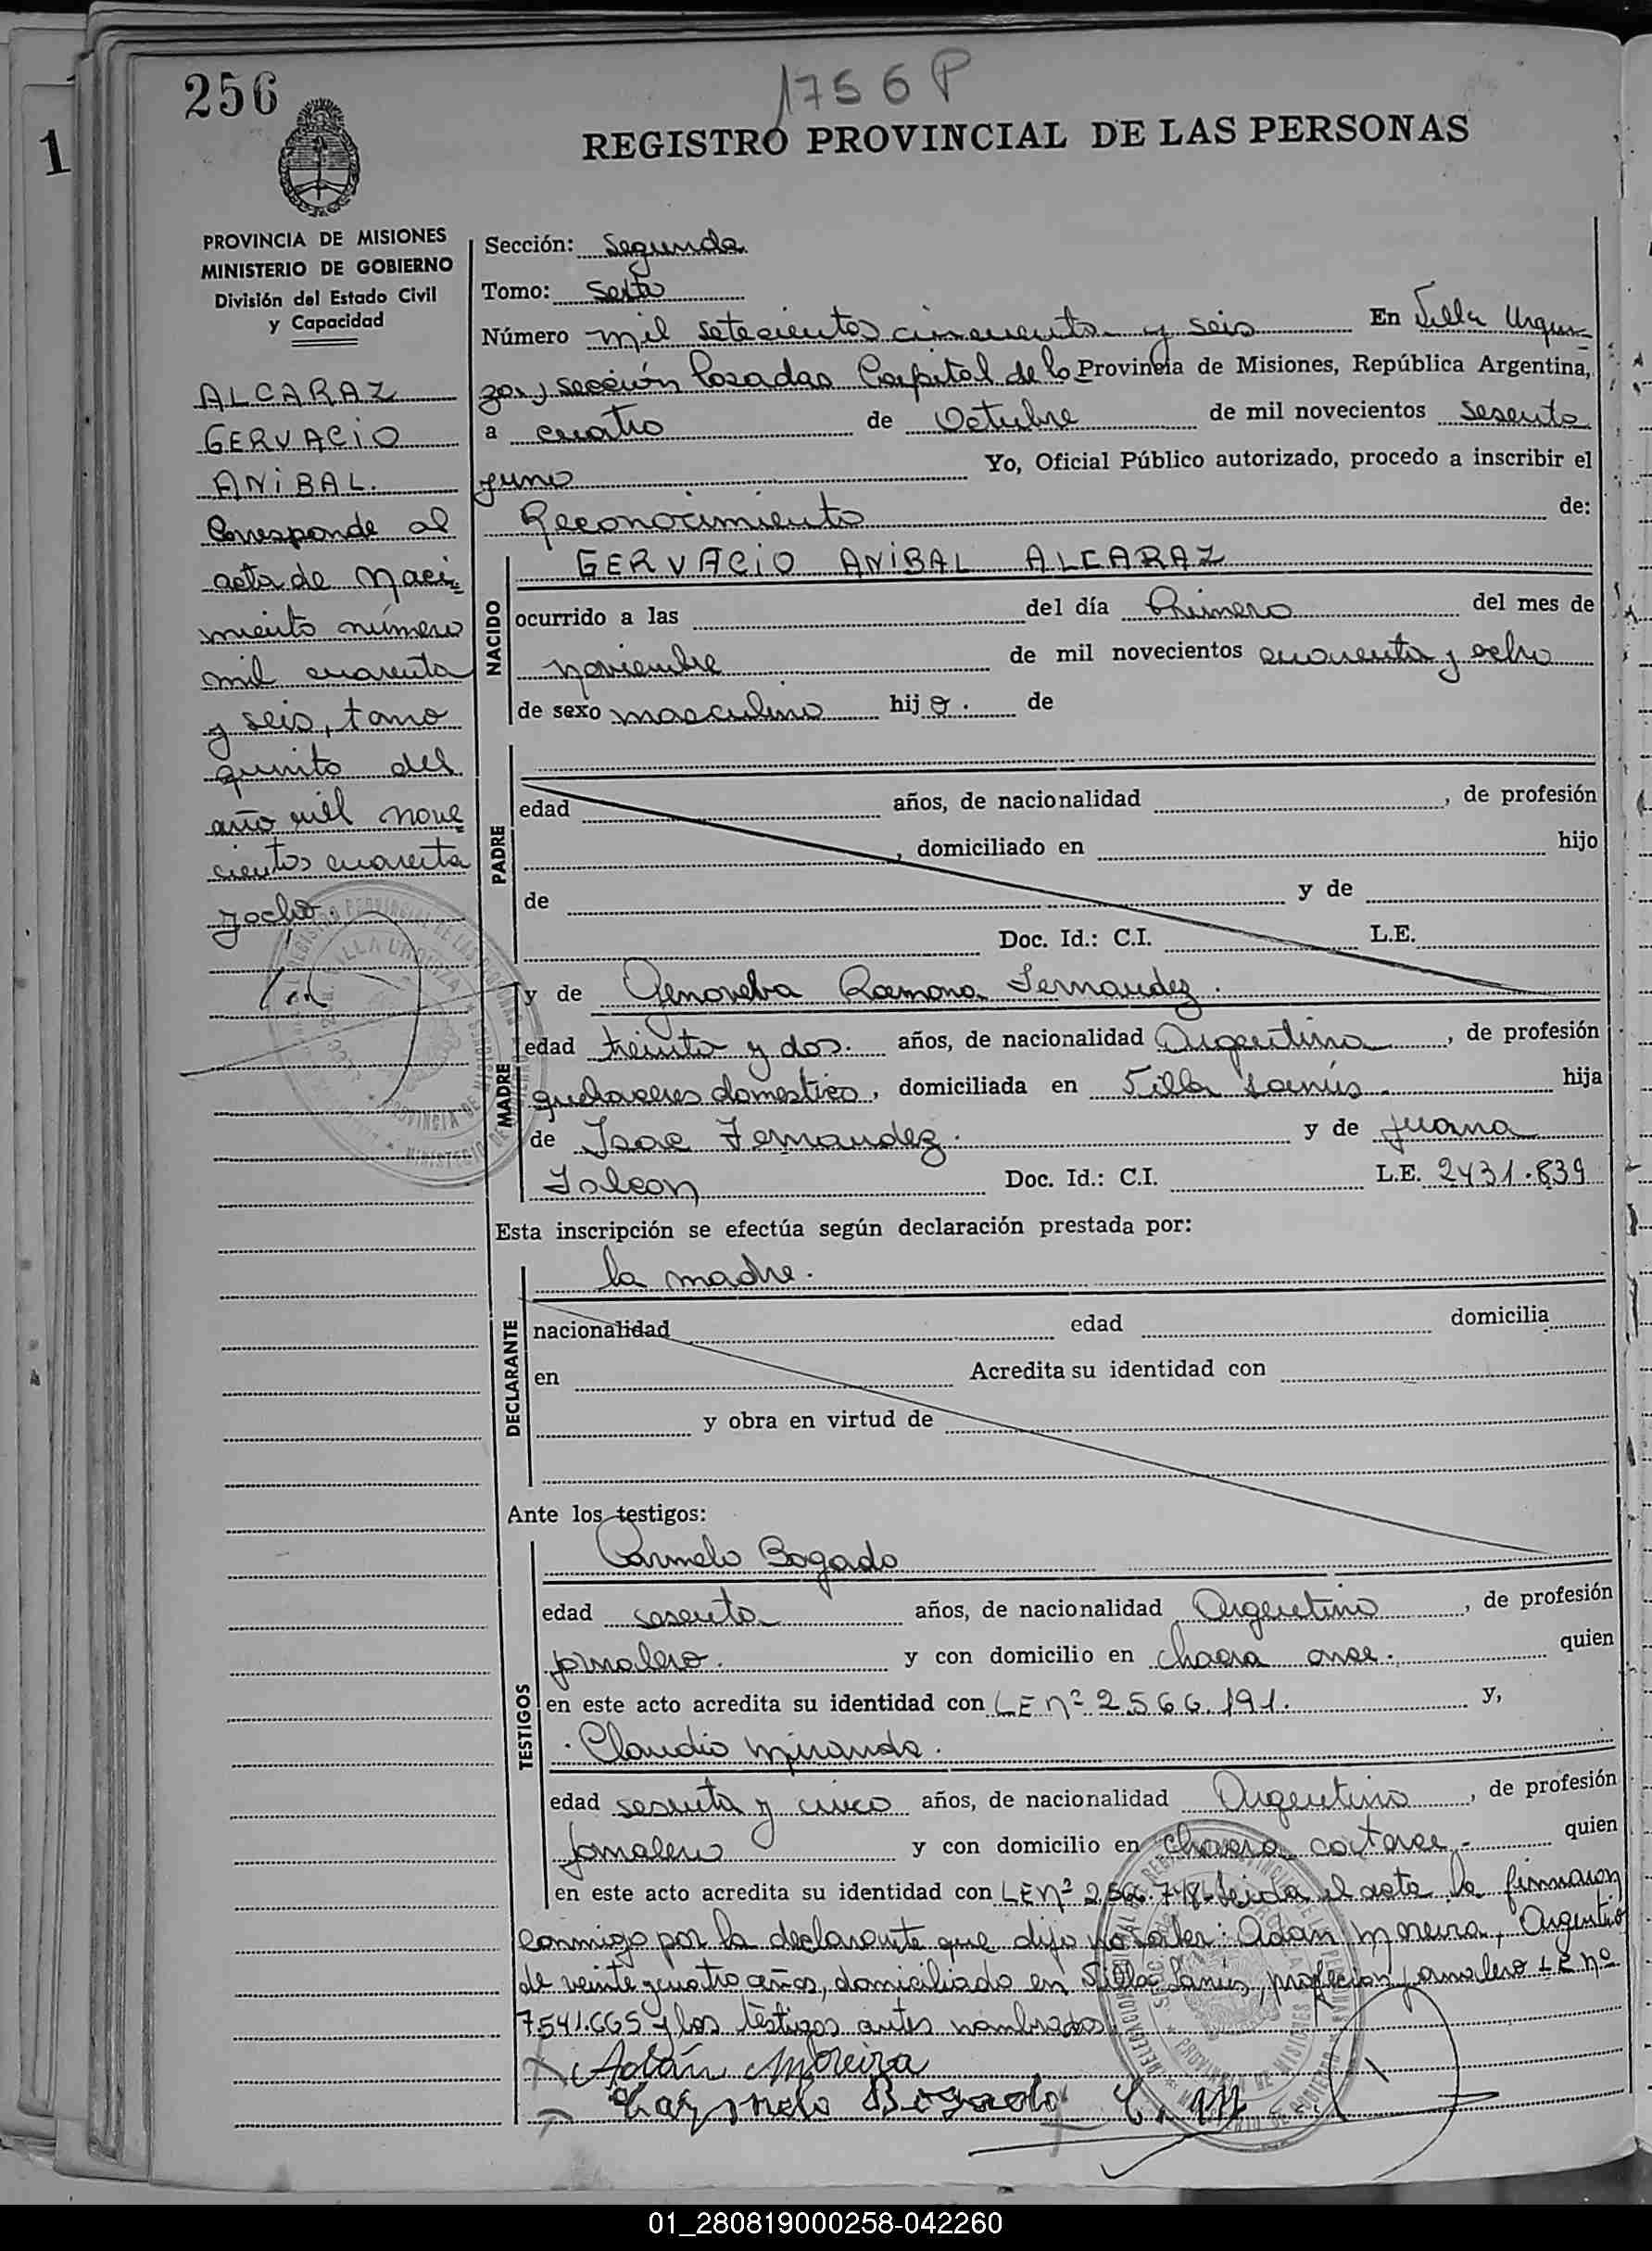 256
1756 P
1
REGISTRO PROVINCIAL DE LAS PERSONAS
PROVINCIA DE MISIONES
MINISTERIO DE GOBIERNO
División del Estado Civil
y Capacidad
ALCARAZ
GERVACIO
ANIBAL.
Corresponde al
acta de Naci-
miento número
mil cuarenta
y seis, tomo
quinto del
año mil nove
cientos cuarenta
y ocho.
Sección: Segunda
Tomo: Sexto
Número mil setecientos cincuenta y seis En Villa Urqui-
za, sección Posadas Capital de la Provincia de Misiones, República Argentina,
a cuatro de Octubre de mil novecientos sesenta
y uno Yo, Oficial Público autorizado, procedo a inscribir el
Reconocimiento de:
NACIDO
GERVACIO ANIBAL ALCARAZ
ocurrido a las del día Primero del mes de
noviembre de mil novecientos cuarenta y ocho
de sexo masculino hijo. de
PADRE
edad años, de nacionalidad , de profesión
, domiciliado en hijo
de y de
Doc. Id.: C.I. L.E.
MADRE
y de Genoveba Ramona Fernandez.
edad treinta y dos. años, de nacionalidad Argentina, de profesión
quehaceres domestico, domiciliada en Villa Lanús hija
de Isac Fernandez. y de Juana
Falcon Doc. Id.: C.I. L.E. 2431.839
Esta inscripción se efectúa según declaración prestada por:
DECLARANTE
la madre.
nacionalidad edad domicilia
en Acredita su identidad con
y obra en virtud de
Ante los testigos:
TESTIGOS
Carmelo Bogado
edad sesenta años, de nacionalidad Argentino, de profesión
jornalero. y con domicilio en chacra once. quien
en este acto acredita su identidad con LE nº 2.566.191. y,
Claudio Miranda.
edad sesenta y cinco años, de nacionalidad Argentino, de profesión
jornalero y con domicilio en chacra catorce.- quien
en este acto acredita su identidad con LE nº Leida el acta la firmaron
conmigo por la declarante que dijo no saber: Adan Moreira, Argentino
de veinte y cuatro años, domiciliado en Villa Lanús, profecion jornalero LE nº
7541.665 y los testigos antes nombrados.
Adán Moreira
Carmelo Bogado C. M
01_280819000258-042260